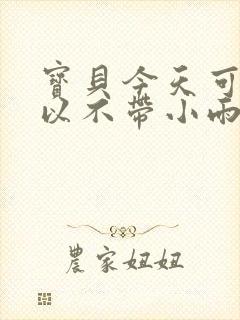 寶貝今天可
以不帶小雨
農家妞妞